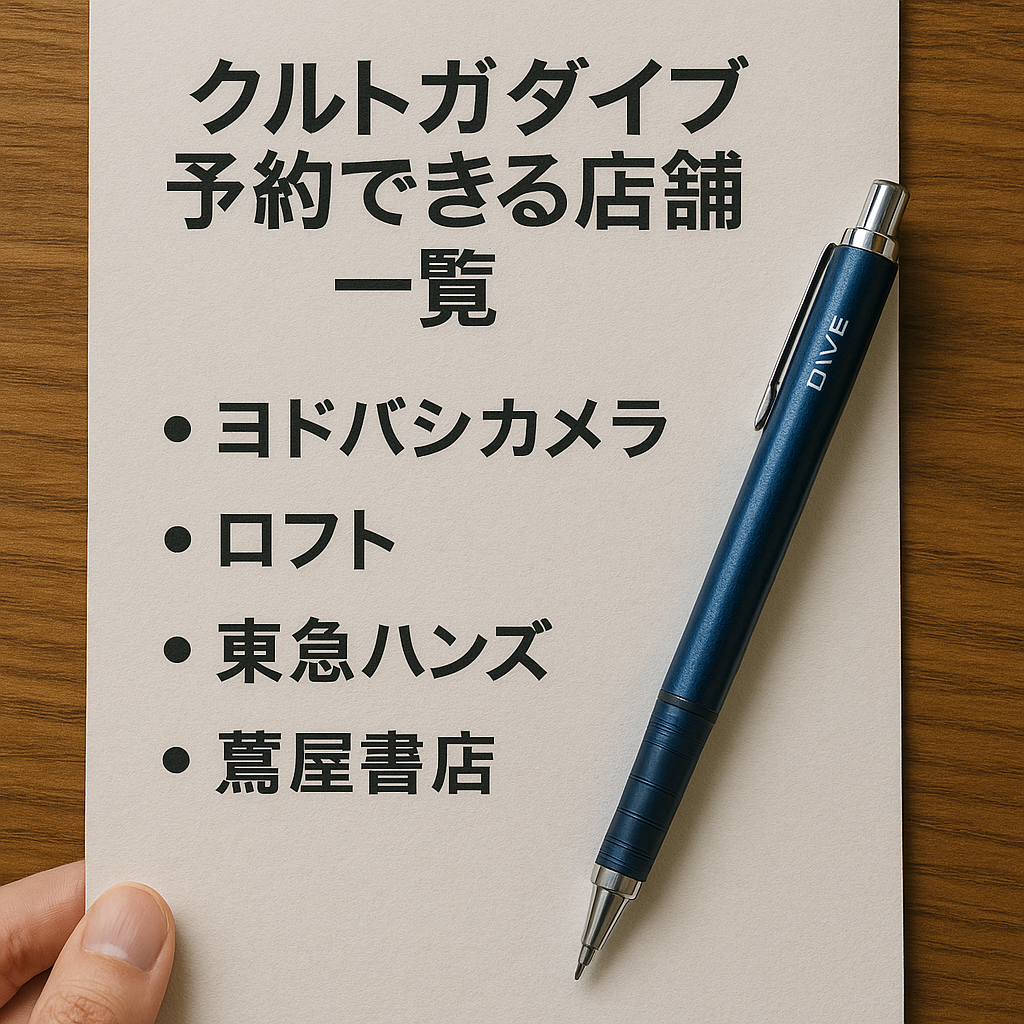 クルトガダイブ
予約できる店舗
一覧
• ヨドバシカメラ
• ロフト
• 東急ハンズ
• 蔦屋書店
DIVE